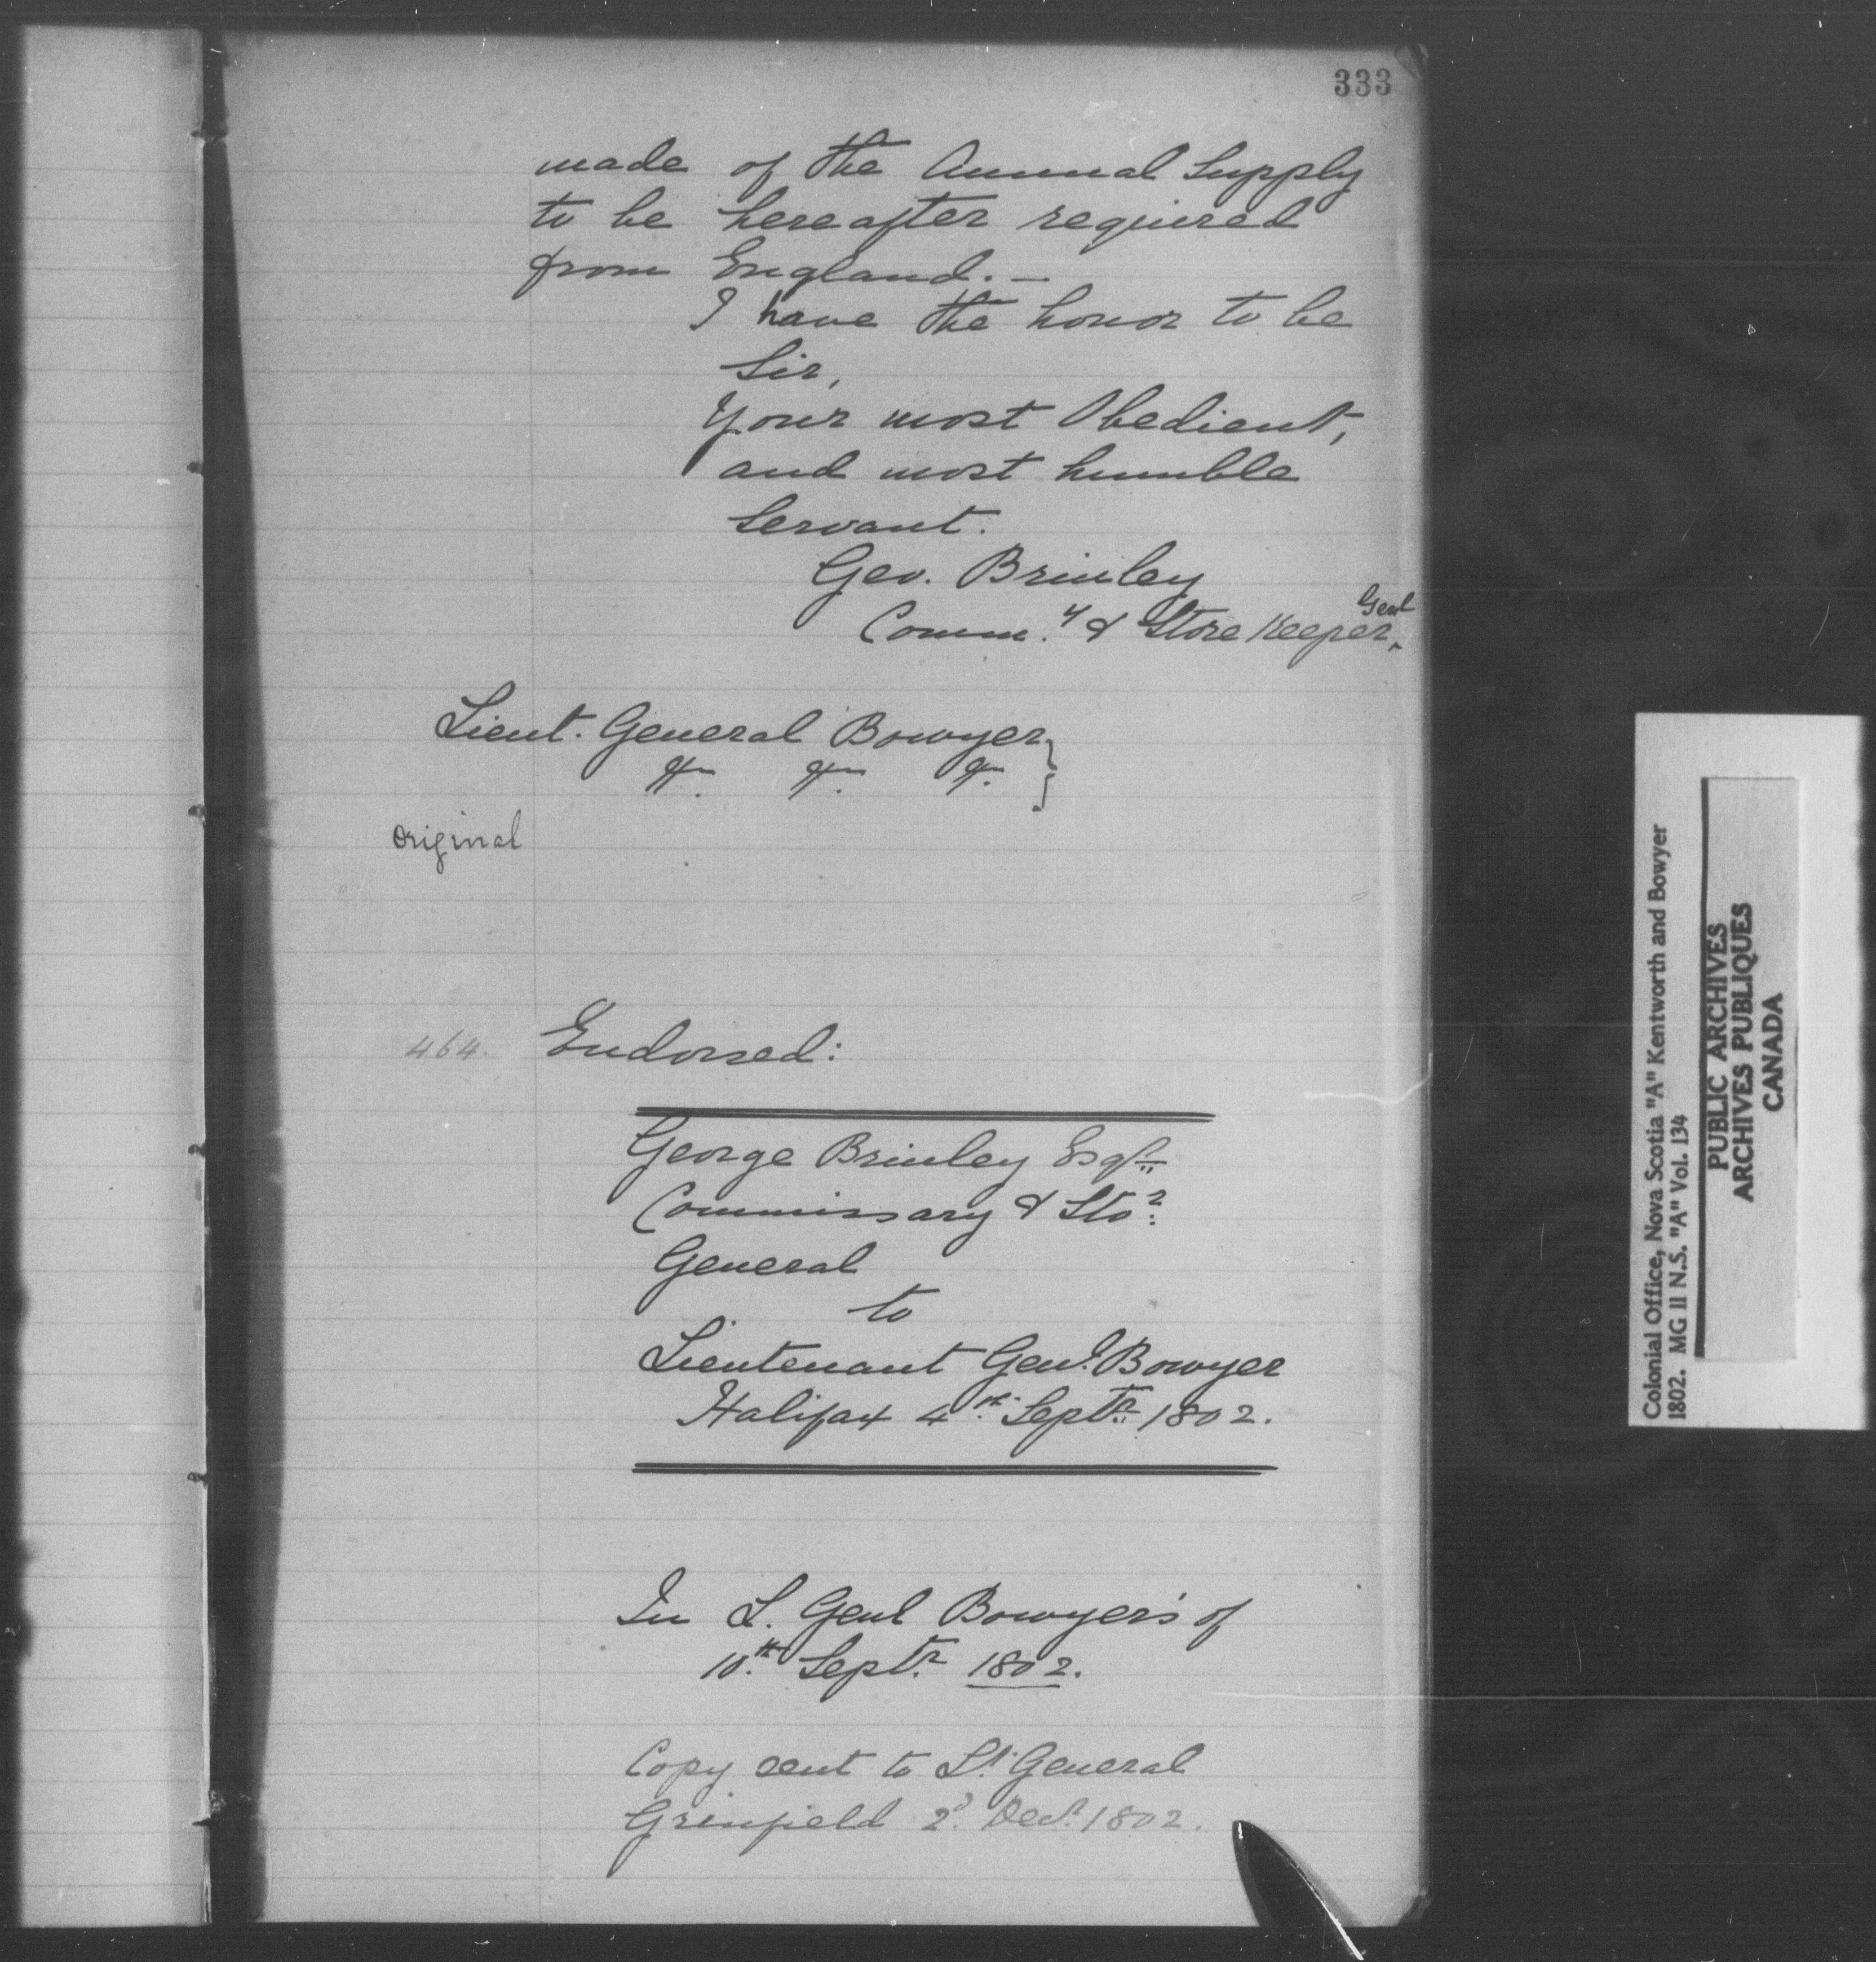 333
made of the Annual Supply
to be hereafter required
from England. —
I have the honor to be
Sir,
Your most Obedient,
and most humble
Servant.
Geo. Brinley
Comm.y & Store Keeper Genl.
Lieut. General Bowyer
&c. &c. &c.
Original
464. Endorsed:
George Brinley Esqr
Commissary & Stor
General
to
Lieutenant Genl. Bowyer
Halifax 4th Septr. 1802.
In L. Genl Bowyer's of
10th Septr. 1802.
Copy sent to Lt. General
Grinfield 2d. Decr. 1802.
Colonial Office, Nova Scotia "A" Kentworth and Bowyer
1802. MG 11 N.S. "A" Vol. 134
PUBLIC ARCHIVES
ARCHIVES PUBLIQUES
CANADA